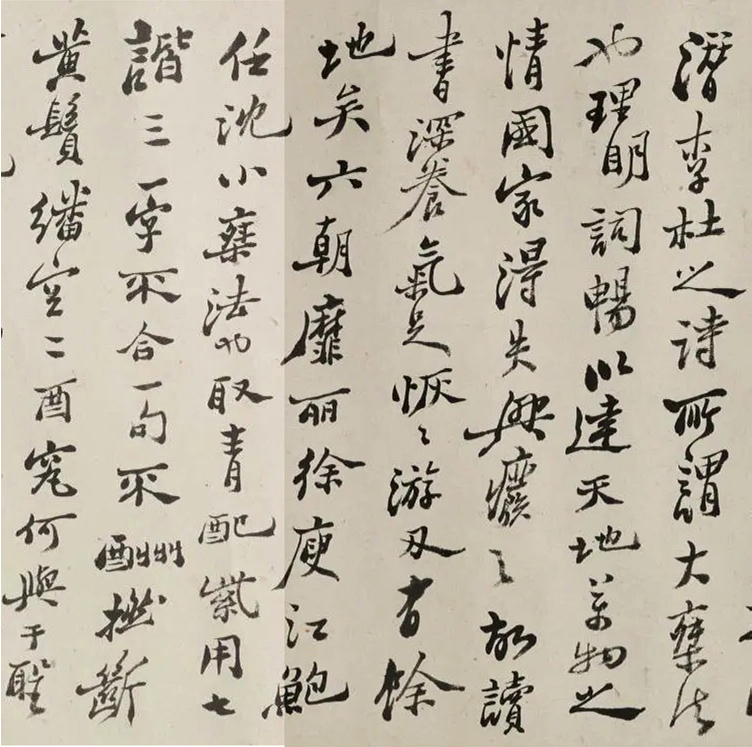 潛李杜之詩所謂大椉法
也理明詞暢以達天地萬物之
情國家得失興癈之故讀
書深養氣足恢〻游刃有餘
地矣六朝靡丽徐庾江鮑
任沈小椉法也取青配紫用七
諧三一字不合一句不酬撚斷
黃鬚繙空二酉究何與于聖